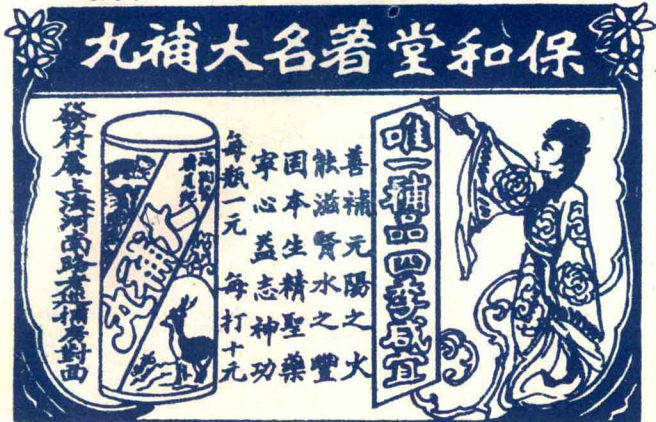 保和堂著名大補丸
唯一補品四季咸宜
善補元陽之火
能滋腎水之豐
固本生精聖藥
寧心益志神功
每瓶一元 每打十元
大補丸
發行處上海河南路老巡捕房對面